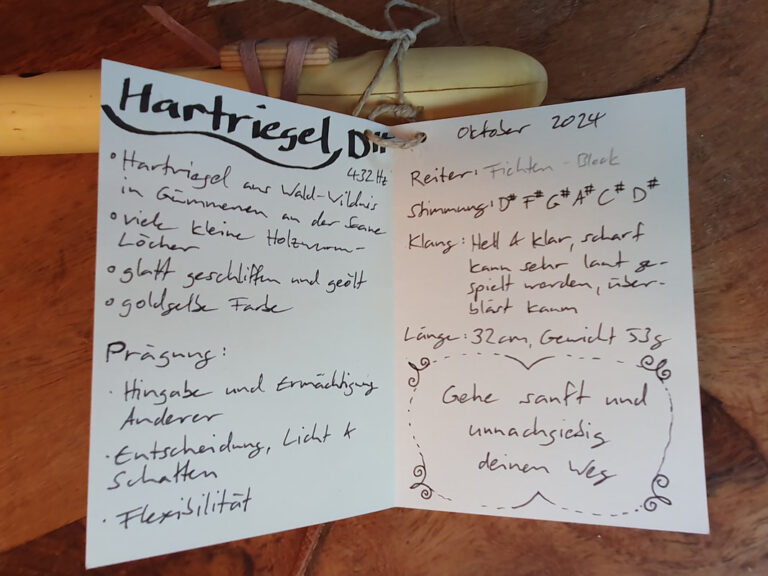 Hartriegel, D#
432 Hz
• Hartriegel aus Wald-Wildnis
in Gümmenen an der Saane
• viele kleine Holzwurm-
Löcher
• glatt geschliffen und geölt
• goldgelbe Farbe
Prägung:
· Hingabe und Ermächtigung
Anderer
· Entscheidung, Licht &
Schatten
· Flexibilität
Oktober 2024
Reiter: Fichten-Block
Stimmung: D# F# G# A# C# D#
Klang: Hell & klar, scharf
kann sehr laut ge-
spielt werden, über-
bläst kaum
Länge: 32cm, Gewicht 53g
Gehe sanft und
unnachgiebig
deinen Weg